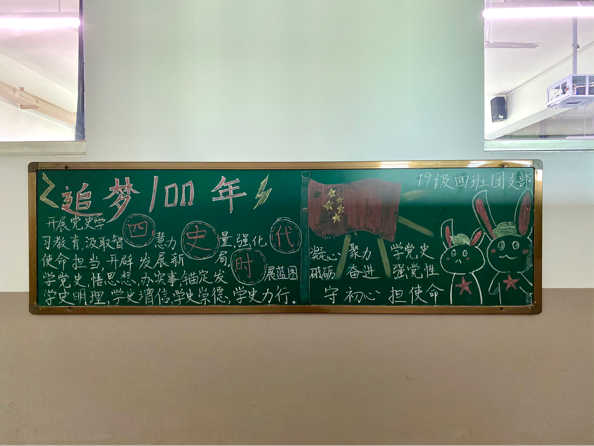 追梦100年
19级四班团支部
开展党史学
习教育,汲取智慧力量,强化
使命担当,开辟发展新局
展蓝图
学党史,悟思想,办实事,锚定发
学史明理,学史增信,学史崇德,学史力行。
四 史 时 代
聚力 学党史
砥砺 奋进 强党性
守初心 担使命